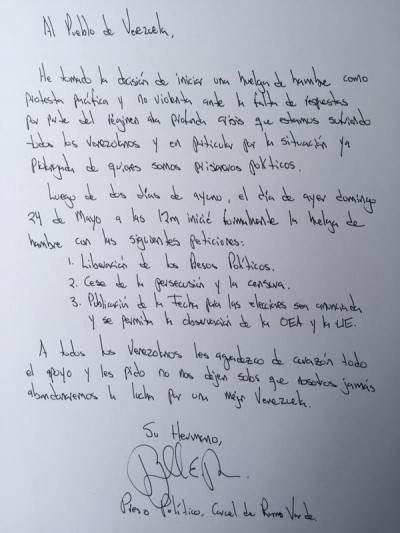 Al Pueblo de Vezuela,
He tomado la decisión de iniciar una huelga de hambre como
protesta pacífica y no violenta ante la falta de respuestas
por parte del régimen a la profunda crisis que estamos sufriendo
todos los venezolanos y en particular por la situación ya
prolongada de quienes somos prisioneros políticos.
Luego de dos días de ayuno, el día de ayer domingo
24 de Mayo a las 12m inicié formalmente la huelga de
hambre con las siguientes peticiones:
1. Liberación de los Presos Políticos.
2. Cese de la persecución y la censura.
3. Publicación de la Fecha para las elecciones sea anunciada
y se permita la observación de la OEA y la UE.
A todos los Venezolanos les agradezco de corazón todo
el apoyo y les pido no nos dejen solos que nosotros jamás
abandonaremos la lucha por una mejor Venezuela.
Su Hermano,
Preso Político, Carcel de Ramo Verde